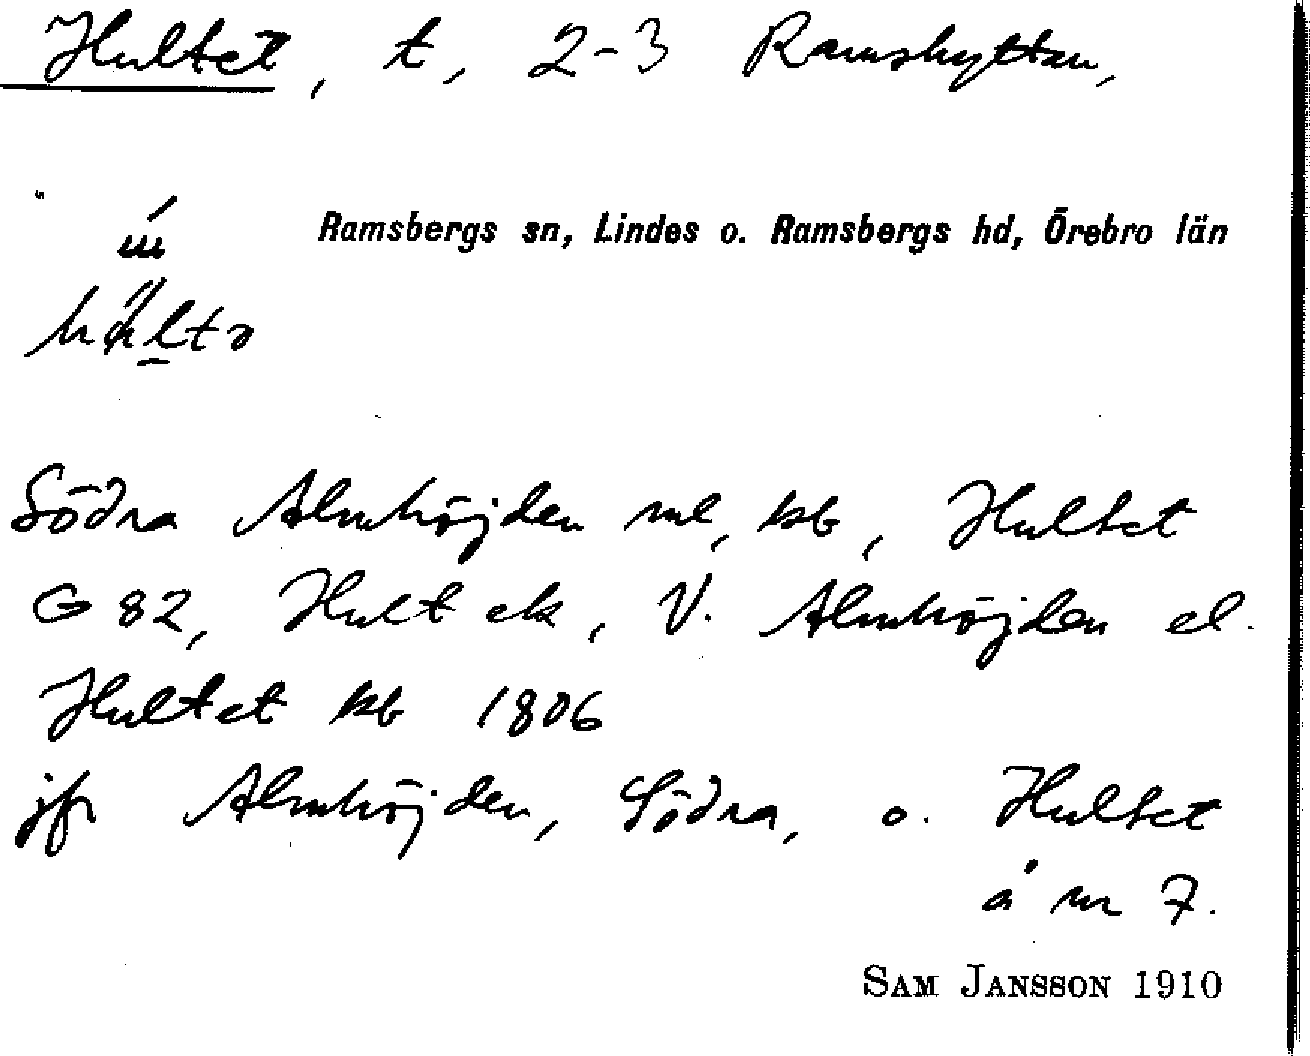 Hultet, t, 2-3 Ramshyttan,
Ramsbergs sn, Lindes o. Ramsbergs hd, Örebro län
Södra Almhöjden ml, kb, Hultet
G 82, Hult ek, V. Almhöjden el.
Hultet kb 1806
jfr Almhöjden, Södra, o. Hultet
å nr 7.
SAM JANSSON 1910